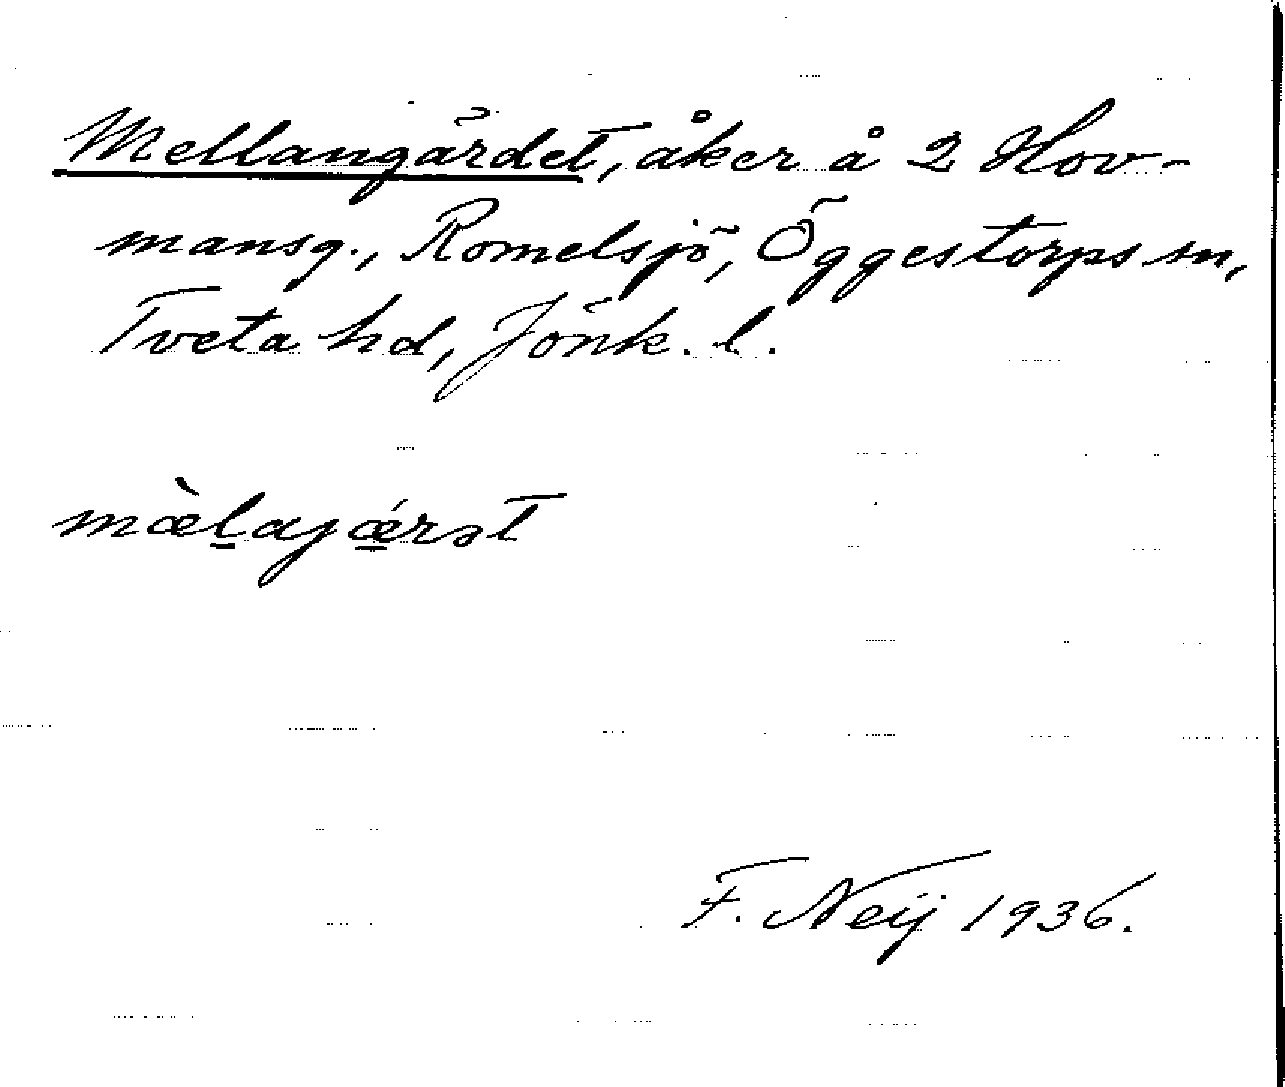 Mellangärdet, åker å 2 Hov-
mansg., Romelsjö, Öggestorps sn,
Tveta hd, Jönk. l.
mæ̀l̠ajǽ̠rət
F. Neij 1936.